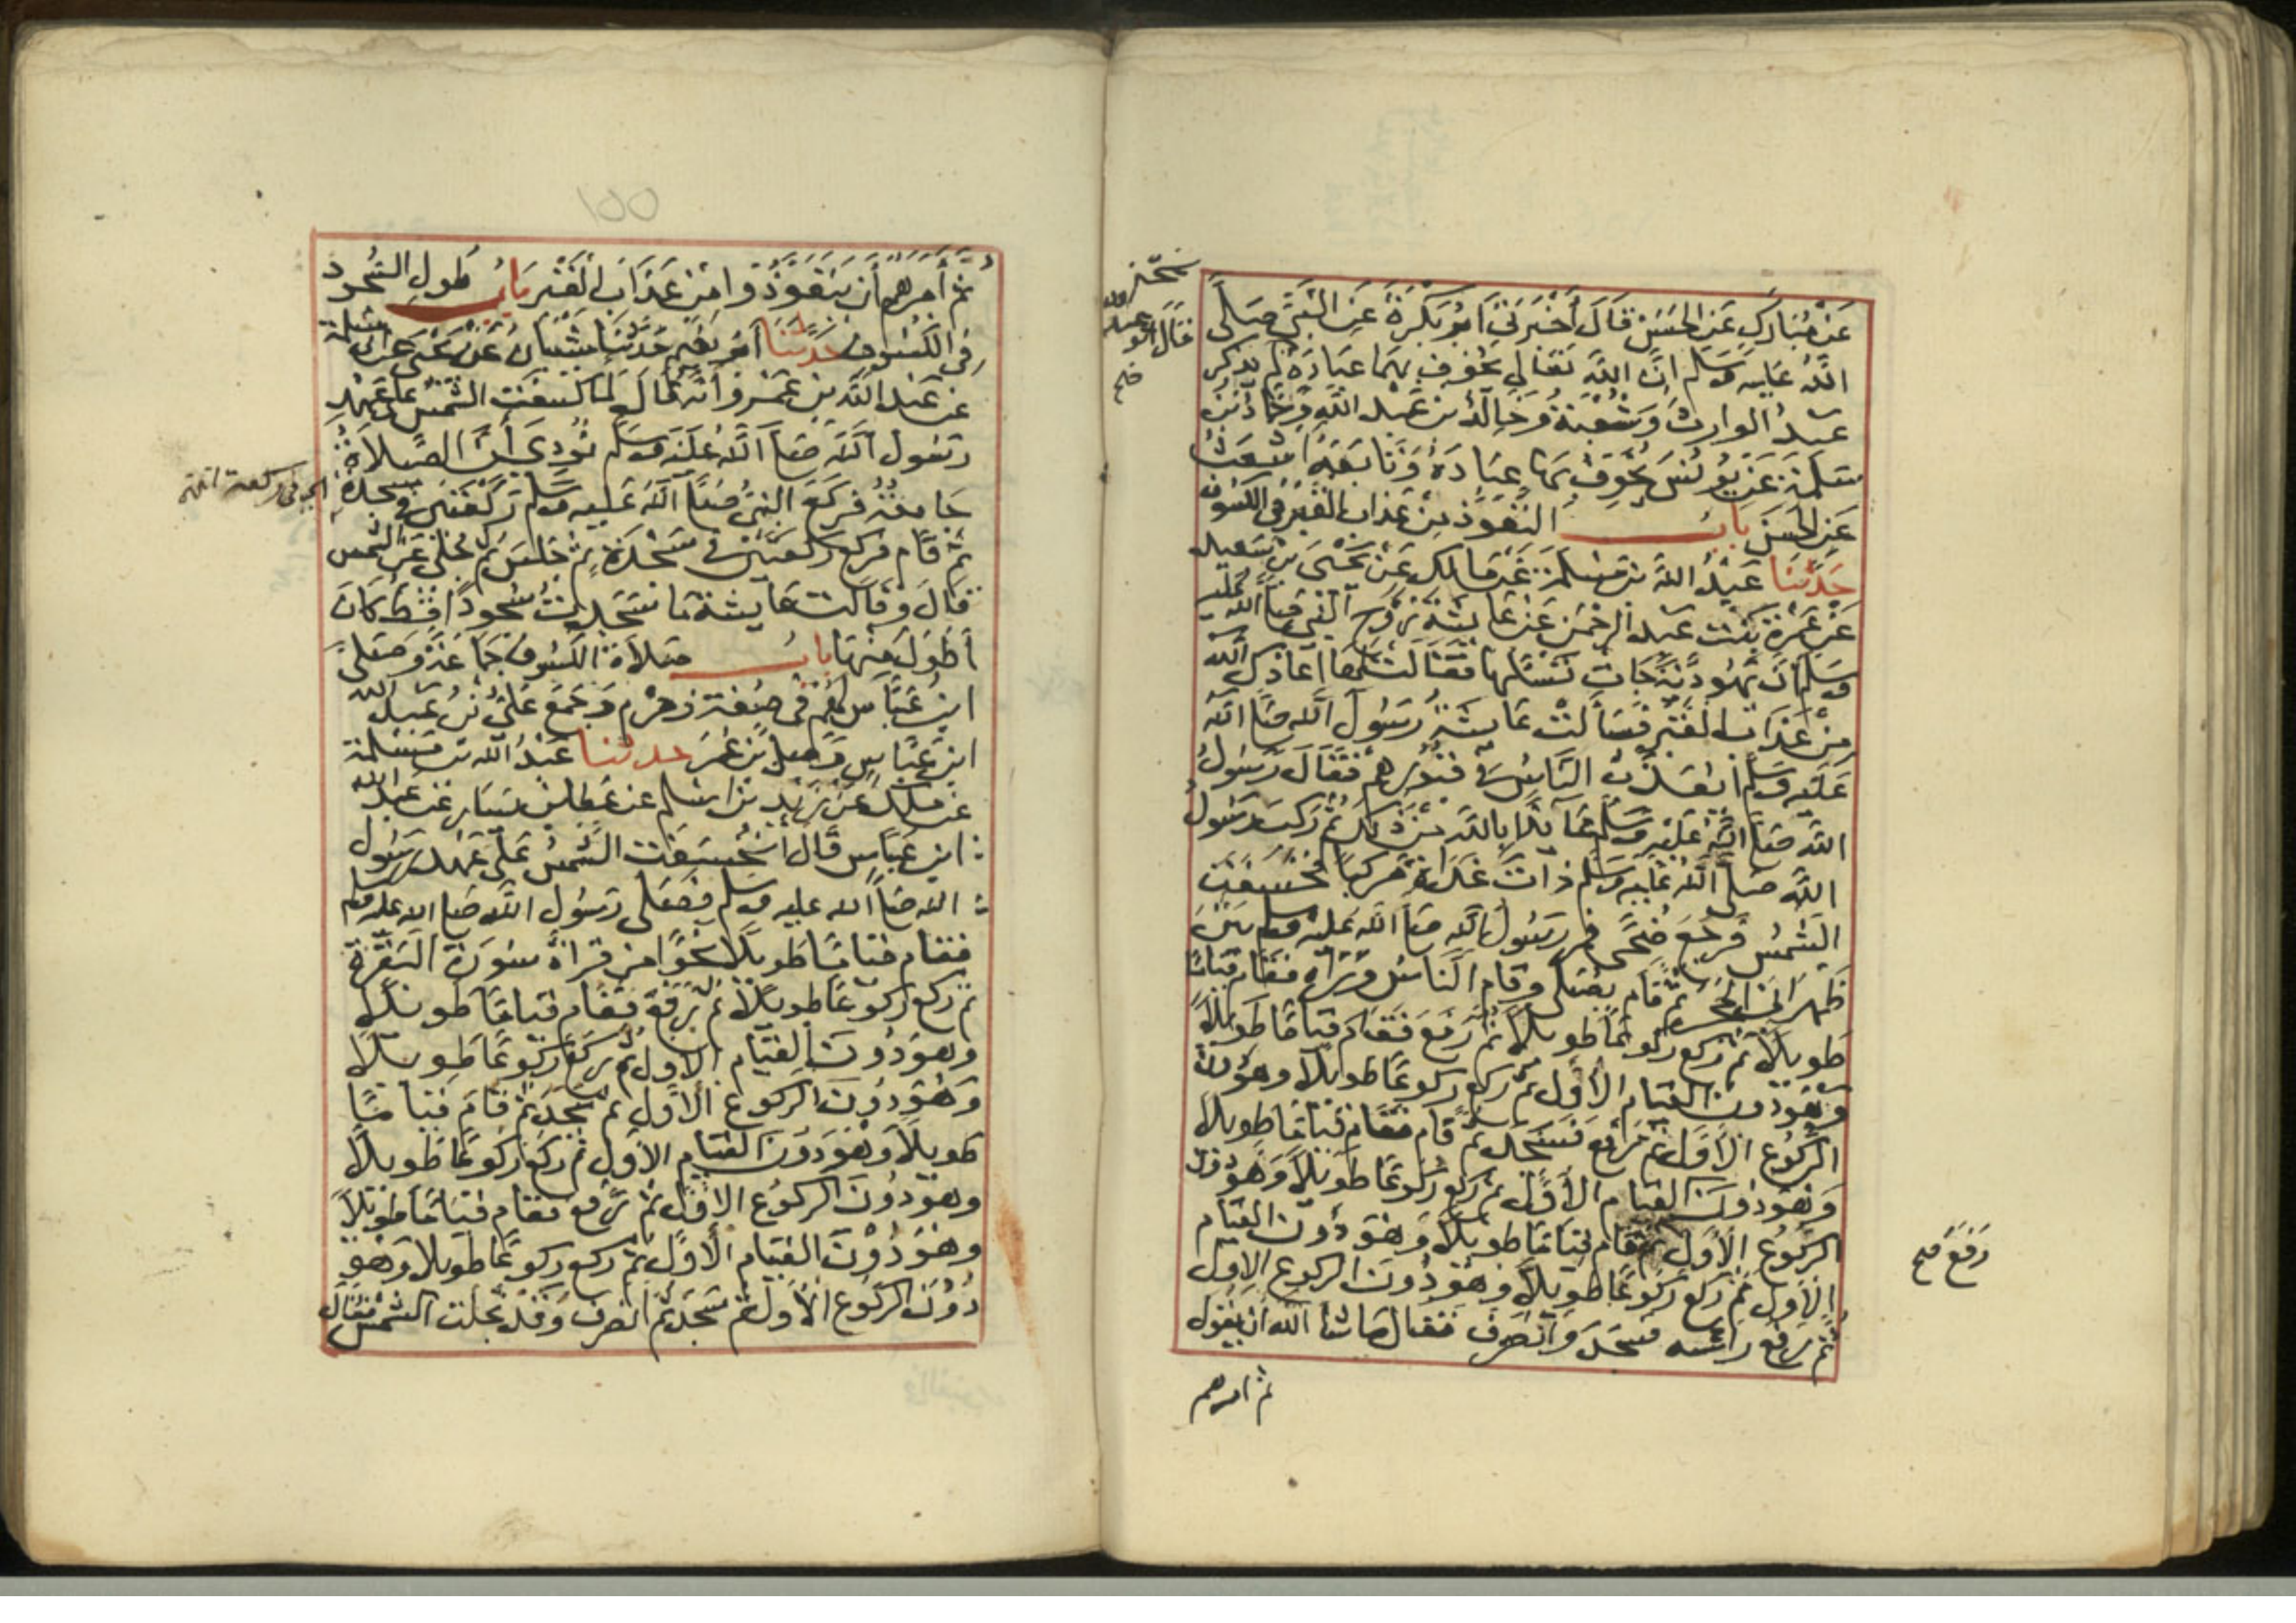 عَنْ مُبَارَكٍ عَنِ الحَسَنِ قَالَ أَخْبَرَنِي أَبُو بَكْرَةَ عَنِ النَّبِيِّ صَلَّى
اللَّهُ عَلَيْهِ وَسَلَّم إِنَّ اللَّهَ تَعَالى يُخَوِّفُ بِهِمَا عِبَادَهُ لَمْ يَذْكُر
عَبْدُ الوارِثِ وَشُعْبَةُ وَخَالِدُ بن عَبْدِ اللَّهِ وَحَمَّادُ بْنُ
سَلَمَةَ عَنْ يُونُسَ يُخَوِّفُ بِهَا عِبَادَهُ وَتَابَعَهُ أَشْعَثُ
عَنِ الحَسَنِ بابُ التَّعَوُّذِ مِنْ عَذَابِ القَبْرِ فِي الكُسُوفِ
حَدَّثَنَا عَبْدُ اللَّهِ بن مَسْلَمَةَ عَنْ مَالِكٍ عَنْ يَحْيَى بْنِ سَعِيدٍ
عَنْ عَمْرَةَ بِنْتِ عَبْدِ الرَّحْمَنِ عَنْ عَائِشَةَ زَوْجِ النَّبِيِّ صَلَّى اللَّهُ عَلَيْهِ
وَسَلَّمَ أَنَّ يَهُودِيَّةً جَاءَتْ تَسْئَلُهَا فَقَالَتْ لَهَا أَعَاذَكِ اللَّهُ
مِنْ عَذَابِ القَبْرِ فَسَأَلَتْ عَائِشَةُ رَسُولَ اللَّهِ صَلَّى اللَّهُ
عَلَيْهِ وَسَلَّمَ أَيُعَذَّبُ النَّاسُ فِي قُبُورِهِمْ فَقَالَ رَسُولُ
اللَّهِ صَلَّى اللَّهُ عَلَيْهِ وَسَلَّم عَائِذًا بِاللَّهِ مِنْ ذَلِكَ ثُمَّ رَكِبَ رَسُولُ
اللَّهِ صَلَّى اللَّهُ عَلَيْهِ وَسَلَّم ذَاتَ غَدَاةٍ مَرْكَبًا فَخَسَفَتِ
الشَّمْسُ فَرَجَعَ ضُحًى فَمَرَّ رَسُولُ اللَّهِ صَلَّى اللَّهُ عَلَيْهِ وَسَلَّم بَيْنَ
ظَهْرَانَيِ الحُجَرِ ثُمَّ قَامَ يُصَلِّي وَقَامَ النَّاسُ وَرَاءَهُ فَقَامَ قِيَامًا
طَوِيلًا ثُمَّ رَكَعَ رُكُوعًا طَوِيلًا ثُمَّ رَفَعَ فَقَامَ قِيَامًا طَوِيلًا
وَهُوَ دُونَ القِيَامِ الأَوَّلِ ثُمَّ رَكَعَ رُكُوعًا طَوِيلًا وَهُوَ دُونَ
الرُّكُوعِ الأَوَّلِ ثُمَّ رَفَعَ فَسَجَدَ ثُمَّ قَامَ فَقَامَ قِيَامًا طَوِيلًا
وَهُوَ دُونَ القِيَامِ الأَوَّلِ ثُمَّ رَكَعَ رُكُوعًا طَوِيلًا وَهُوَ دُونَ
الرُّكُوعِ الأَوَّلِ ثُمَّ قَامَ قِيَامًا طَوِيلًا وَهُوَ دُونَ القِيَامِ
الأَوَّلِ ثُمَّ رَكَعَ رُكُوعًا طَوِيلًا وَهُوَ دُونَ الرُّكُوعِ الأَوَّلِ
ثُمَّ رَفَعَ رَأْسَهُ فَسَجَدَ وَانْصَرَفَ فَقَالَ مَا شَاءَ اللَّهُ أَنْ يَقُولَ
ثم امرهم
رَفَعَ صح
قال أبو عبد الله
صح
ثُمَّ أَمَرَهُمْ أَنْ يَتَعَوَّذُوا مِنْ عَذَابِ القَبْرِ بَابُ طُولِ السُّجُودِ
فِي الكُسُوفِ حَدَّثَنَا أَبُو نُعَيْمٍ حَدَّثَنَا شَيْبَانُ عَنْ يَحْيَى عَنْ أَبِي سَلَمَةَ
عَنْ عَبْدِ اللَّهِ بن عَمْرٍو أَنَّهُ قَالَ لَمَّا كَسَفَتِ الشَّمْسُ عَلَى عَهْدِ
رَسُولِ اللَّهِ صَلَّى اللَّهُ عَلَيْهِ وَسَلَّم نُودِيَ أَنَّ الصَّلَاةَ
جَامِعَةٌ فَرَكَعَ النَّبِيُّ صَلَّى اللَّهُ عَلَيْهِ وَسَلَّم رَكْعَتَيْنِ فِي سَجْدَةٍ
ثُمَّ قَامَ فَرَكَعَ رَكْعَتَيْنِ فِي سَجْدَةٍ ثُمَّ جَلَسَ ثُمَّ جُلِّيَ عَنِ الشَّمْسِ
قَالَ وَقَالَتْ عَائِشَةُ مَا سَجَدْتُ سُجُودًا قَطُّ كَانَ
أَطْوَلَ مِنْهَا بَابُ صَلَاةِ الكُسُوفِ جَمَاعَةً وَصَلَّى
ابْنُ عَبَّاسٍ لَهُمْ فِي صُفَّةِ زَمْزَمَ وَجَمَعَ عَلِيُّ بْنُ عَبْدِ اللَّهِ
ابْنِ عَبَّاسٍ وَصَلَّى ابْنُ عُمَرَ حدثنا عَبْدُ اللَّهِ بن مَسْلَمَةَ
عَنْ مَالِكٍ عَنْ زَيْدِ بْنِ أَسْلَمَ عَنْ عَطَاءِ بْنِ يَسَارٍ عَنْ عَبْدِ اللَّهِ
ابنِ عَبَّاسٍ قَالَ انْخَسَفَتِ الشَّمْسُ عَلَى عَهْدِ رَسُولِ
اللَّهِ صَلَّى اللَّهُ عليه وسَلَّم فَصَلَّى رَسُولُ اللَّهِ صَلَّى الله عليه وسلم
فَقَامَ قِيَامًا طَوِيلًا نَحْوًا مِنْ قِرَاءَةِ سُورَةِ البَقَرَةِ
ثُمَّ رَكَعَ رُكُوعًا طَوِيلًا ثُمَّ رَفَعَ فَقَامَ قِيَامًا طَوِيلًا
وَهُوَ دُونَ القِيَامِ الأَوَّلِ ثُمَّ رَكَعَ رُكُوعًا طَوِيلًا
وَهُوَ دُونَ الرُّكُوعِ الأَوَّلِ ثُمَّ سَجَدَ ثُمَّ قَامَ قِيَامًا
طَوِيلًا وَهُوَ دُونَ القِيَامِ الأَوَّلِ ثُمَّ رَكَعَ رُكُوعًا طَوِيلًا
وَهُوَ دُونَ الرُّكُوعِ الأَوَّلِ ثُمَّ رَفَعَ فَقَامَ قِيَامًا طَوِيلًا
وَهُوَ دُوْنَ القِيَامِ الأَوَّلِ ثُمَّ رَكَعَ رُكُوعًا طَوِيلًا وَهُوَ
دُوْنَ الرُّكُوعِ الأَوَّلِ ثُمَّ سَجَدَ ثُمَّ انْصَرَفَ وَقَدْ تَجَلَّتِ الشَّمْسُ فَقَالَ
اي في ركعة